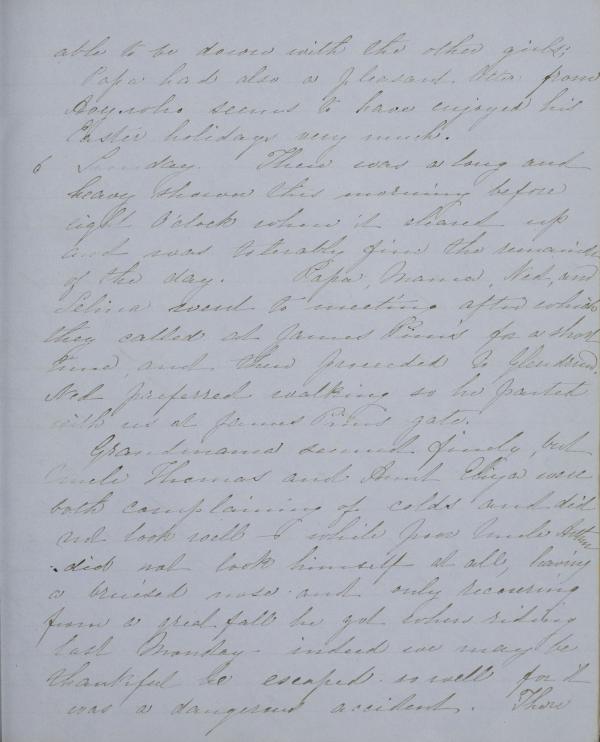 able to be down with the other girls;
Papa had also a pleasant letter from
who seems to have enjoyed his
Easter holidays very much.
6 Sunday. There was a long and
heavy shower this morning before
eight O'clock when it cleared up
and was tolerably fine the remainder
of the day. Papa, Mama, Ned, and
Selina went to meeting after which
they called at James Pim's for a short
time and then proceeded to
Ned preferred walking so he parted
with us at James Pim's gate.
Grandmama seemed finely, but
Uncle Thomas and Aunt Eliza were
both complaining of colds and did
not look well - while poor Uncle
did not look himself at all, having
a bruised nose and only recovering
from a great fall he got when riding
last Monday - indeed we may be
thankful he escaped so well for it
was a dangerous accident. There